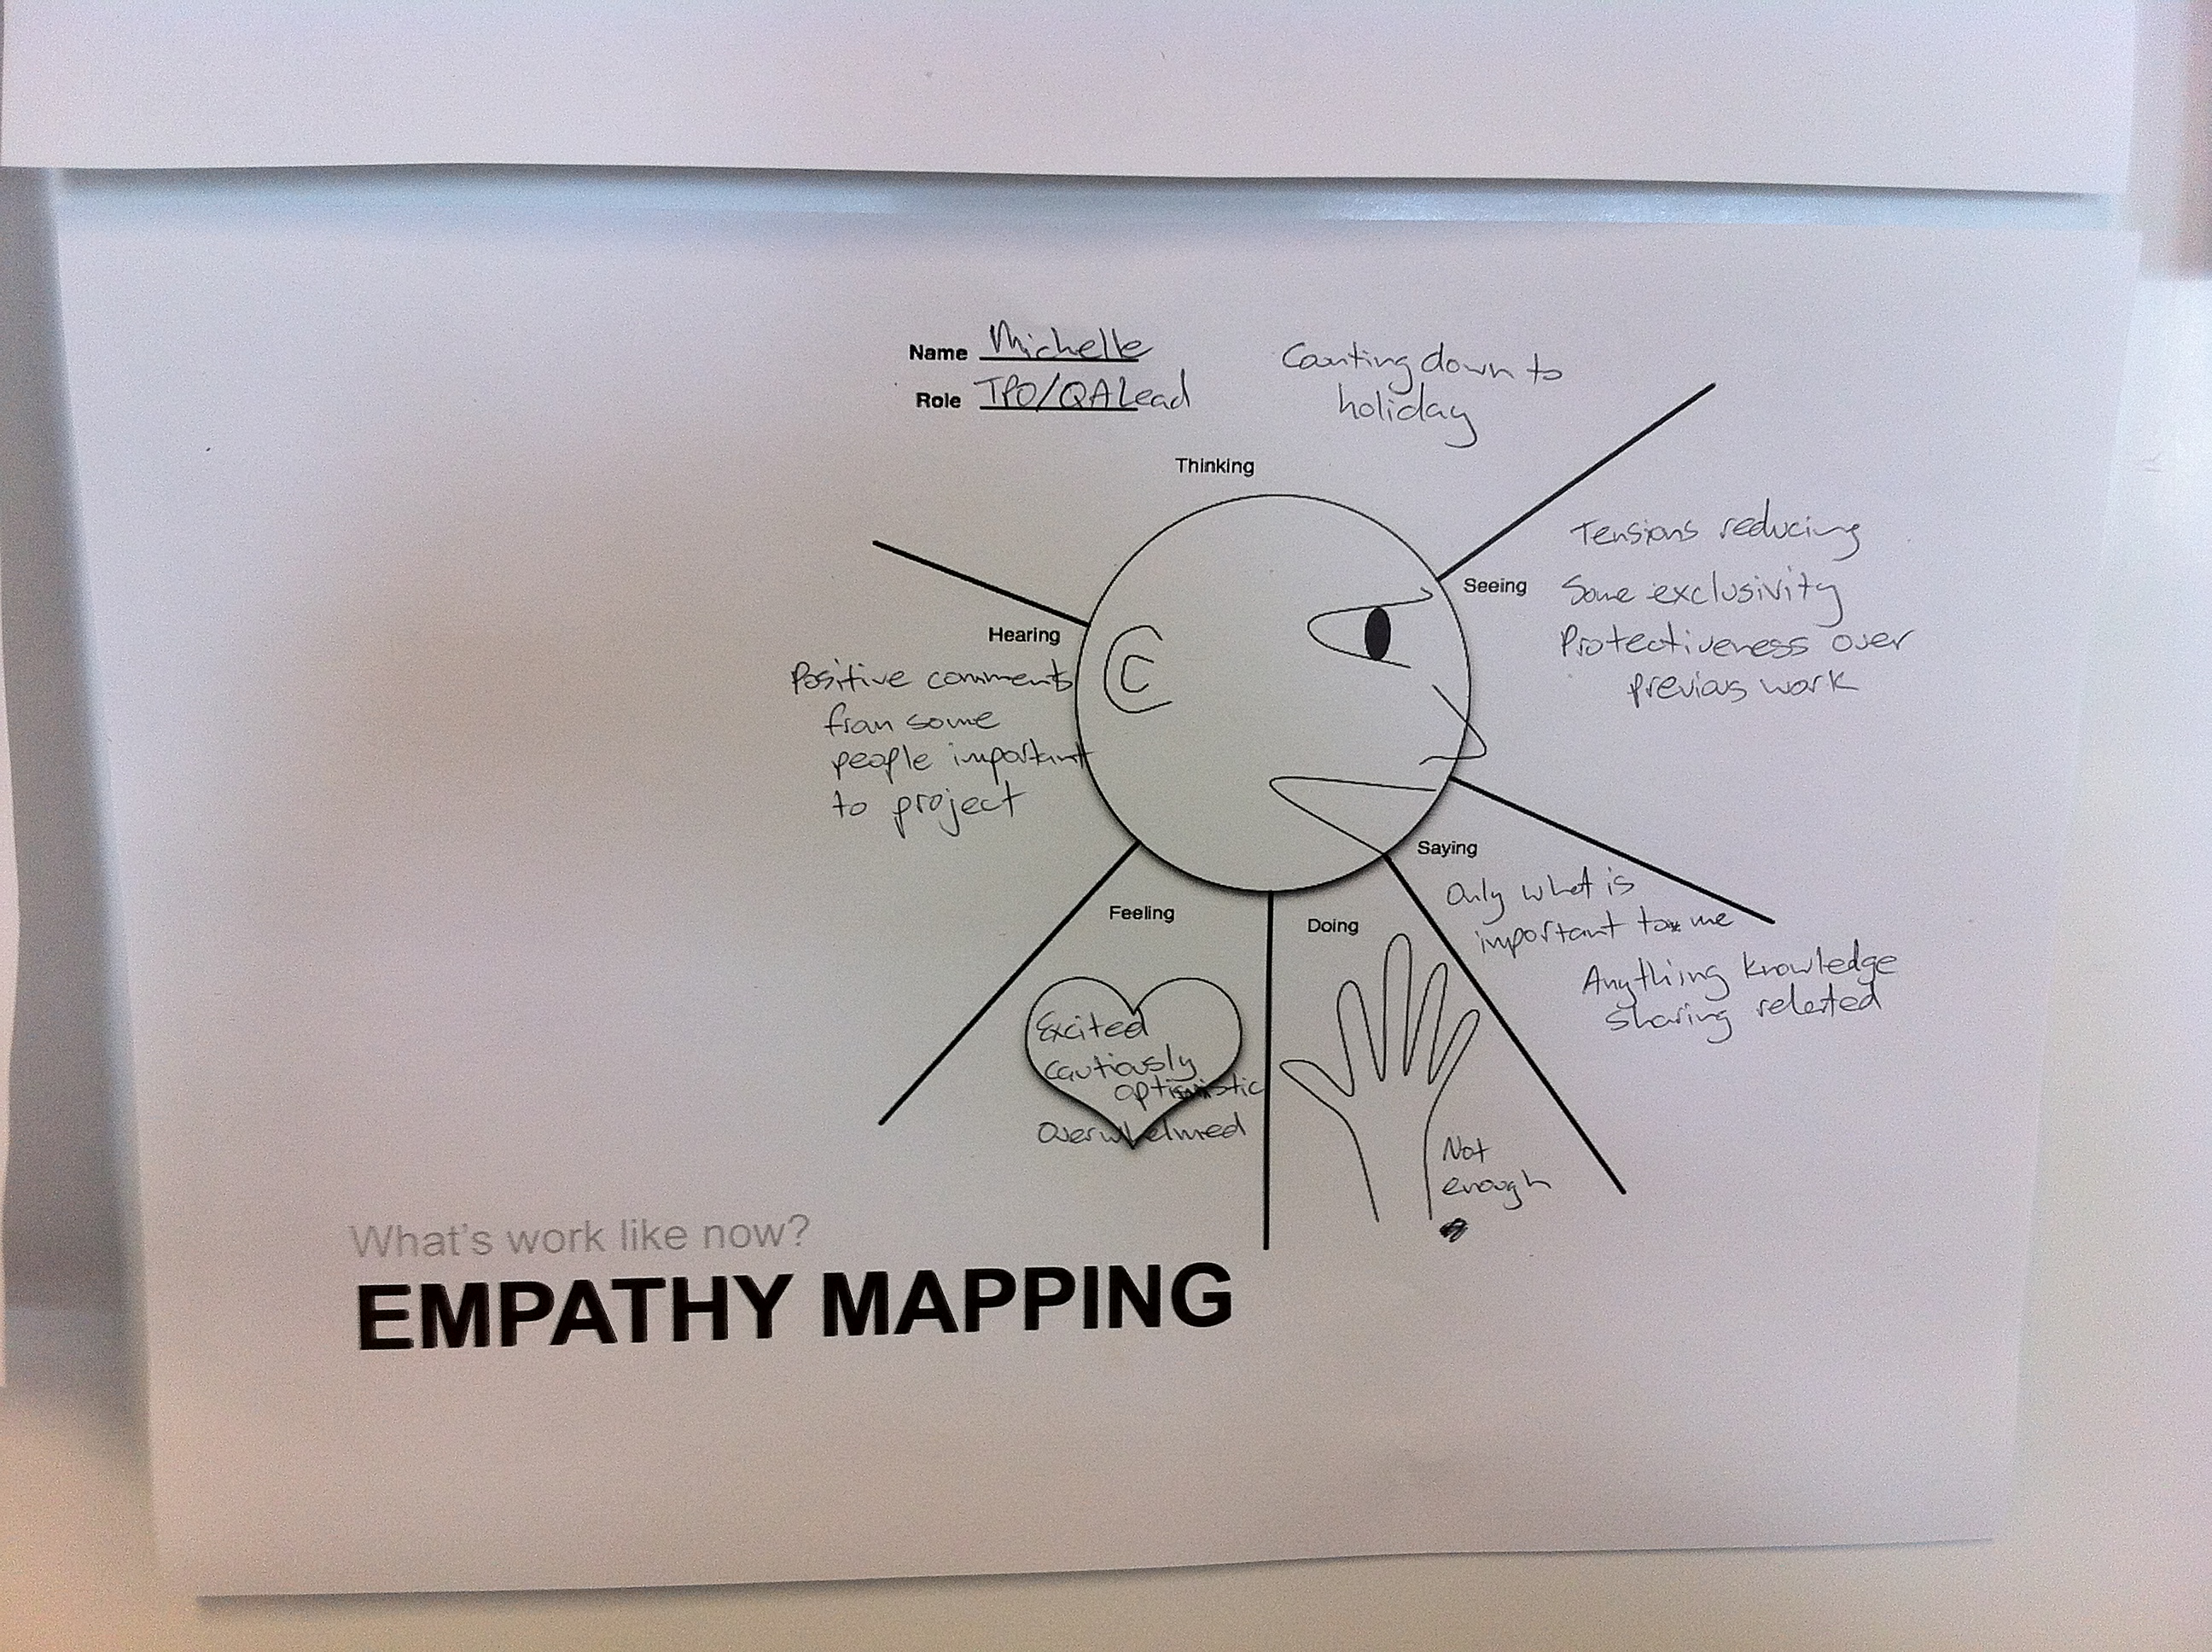 Name Michelle
Role TPO/QA Lead
Counting down to
holiday
Thinking
Seeing
Tensions reducing
Some exclusivity
Protectiveness over
previous work
Hearing
Positive comments
from some
people important
to project
Saying
Only what is
important to me
Anything knowledge
sharing related
Feeling
Excited
Cautiously
optimistic
Overwhelmed
Doing
Not
enough
What's work like now?
EMPATHY MAPPING